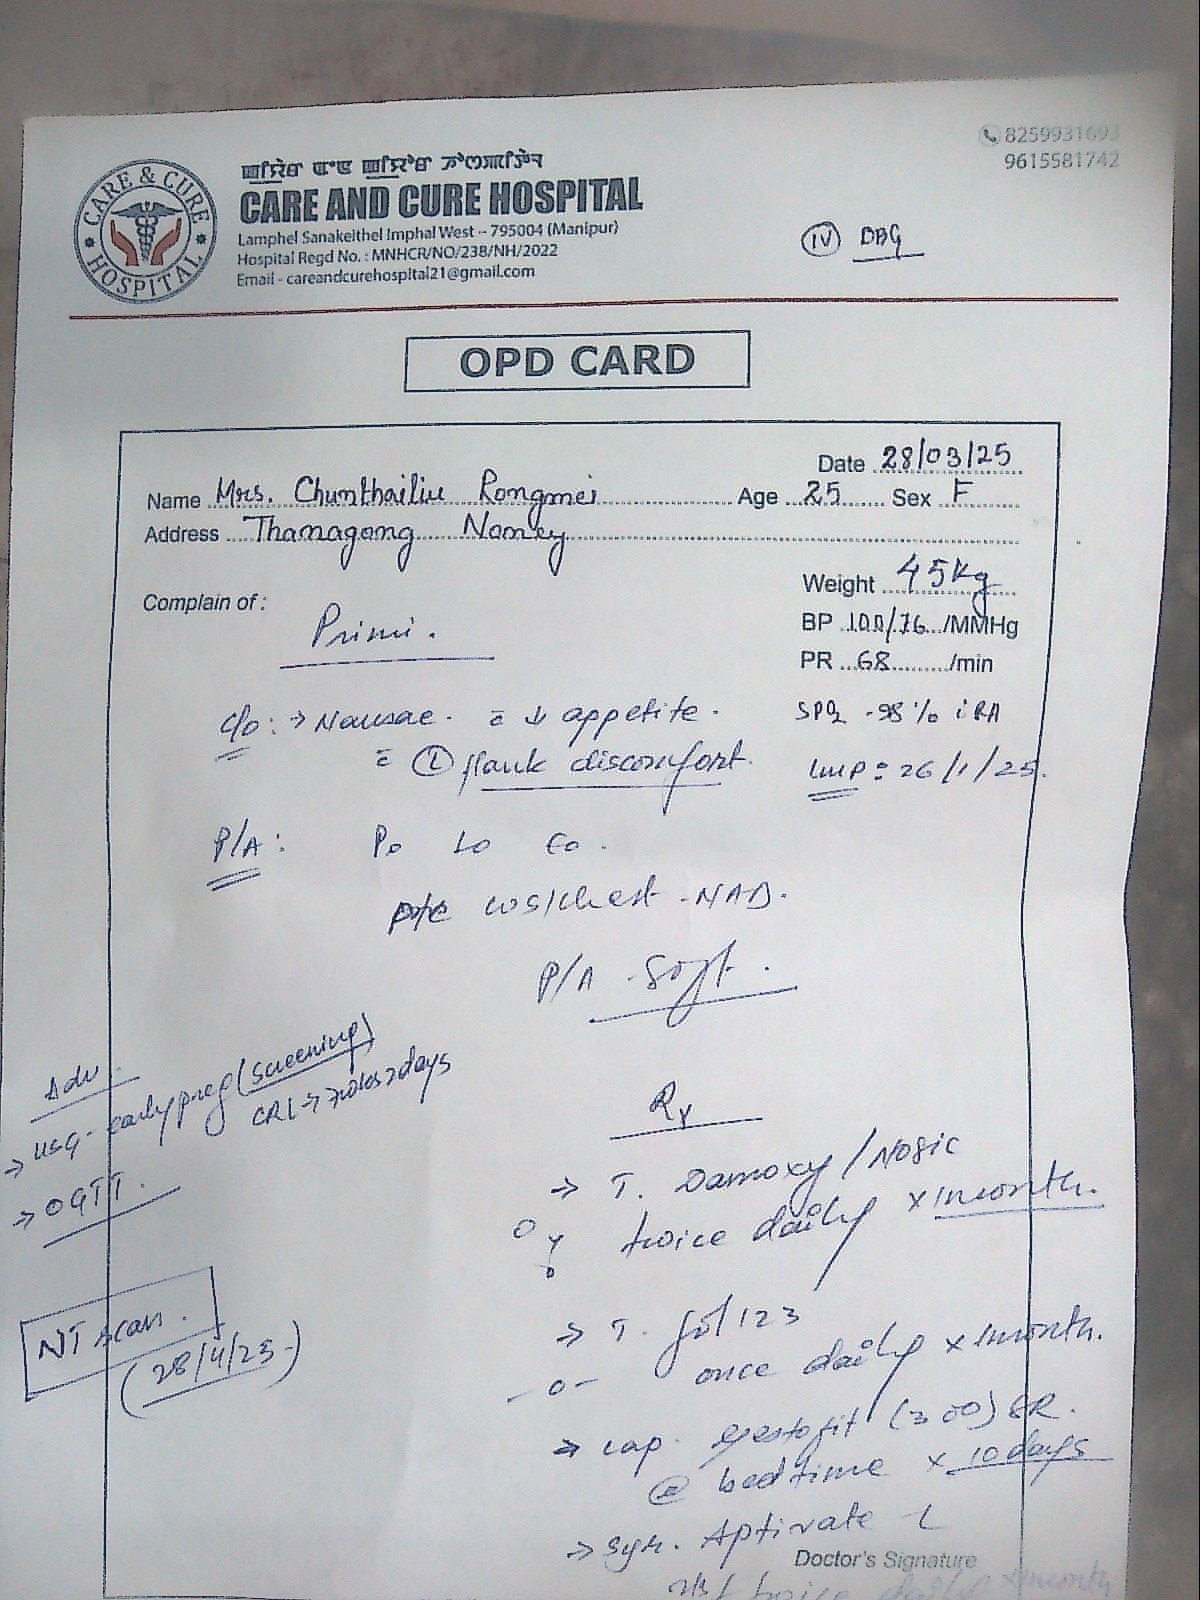 8259931693
9615581742
CARE & CURE HOSPITAL
CARE AND CURE HOSPITAL
Lamphel Sanakeithel Imphal West - 795004 (Manipur)
Hospital Regd No. : MNHCR/NO/238/NH/2022
Email - careandcurehospital21@gmail.com
IV
OPD CARD
Date 28/03/25
Name Mrs. Chunthailiu Rongmei Age 25 Sex F
Address Thanagong Noney
Weight 45kg
Complain of :
BP 100/76 /MMHg
Primi.
PR 68 /min
c/o: → Nausae. c̄ ↓ appetite.
SPO2 - 98% i RA
c̄ flank discomfort.
LMP: 26/1/25.
P/A: Po Lo Co.
CVS/chest - NAD.
P/A - Soft.
Adv.
→ USG - early preg (screening)
→ OGTT.
NT scan.
Rx
→ T. Damoxy / Nosic
twice daily x 1 month.
→ T. fol 123
- o - once daily x 1 month.
→ cap. Gestofit (300) SR.
@ bedtime x 10 days
→ Syr. Aptivate - L
Doctor's Signature
twice daily x 1 month